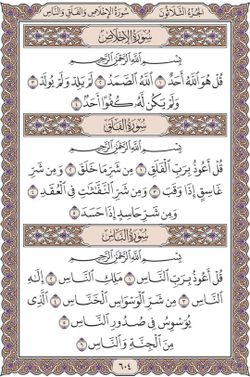 الجزء الثلاثون
سورة الإخلاص والفلق والناس
سورة الإخلاص
بسم الله الرحمن الرحيم
قُلْ هُوَ اللَّهُ أَحَدٌ ١ اللَّهُ الصَّمَدُ ٢ لَمْ يَلِدْ وَلَمْ يُولَدْ ٣
وَلَمْ يَكُن لَّهُ كُفُوًا أَحَدٌ ٤
سورة الفلق
بسم الله الرحمن الرحيم
قُلْ أَعُوذُ بِرَبِّ الْفَلَقِ ١ مِن شَرِّ مَا خَلَقَ ٢ وَمِن شَرِّ
غَاسِقٍ إِذَا وَقَبَ ٣ وَمِن شَرِّ النَّفَّاثَاتِ فِي الْعُقَدِ ٤
وَمِن شَرِّ حَاسِدٍ إِذَا حَسَدَ ٥
سورة الناس
بسم الله الرحمن الرحيم
قُلْ أَعُوذُ بِرَبِّ النَّاسِ ١ مَلِكِ النَّاسِ ٢ إِلَٰهِ
النَّاسِ ٣ مِن شَرِّ الْوَسْوَاسِ الْخَنَّاسِ ٤ الَّذِي
يُوَسْوِسُ فِي صُدُورِ النَّاسِ ٥
مِنَ الْجِنَّةِ وَالنَّاسِ ٦
٦٠٤